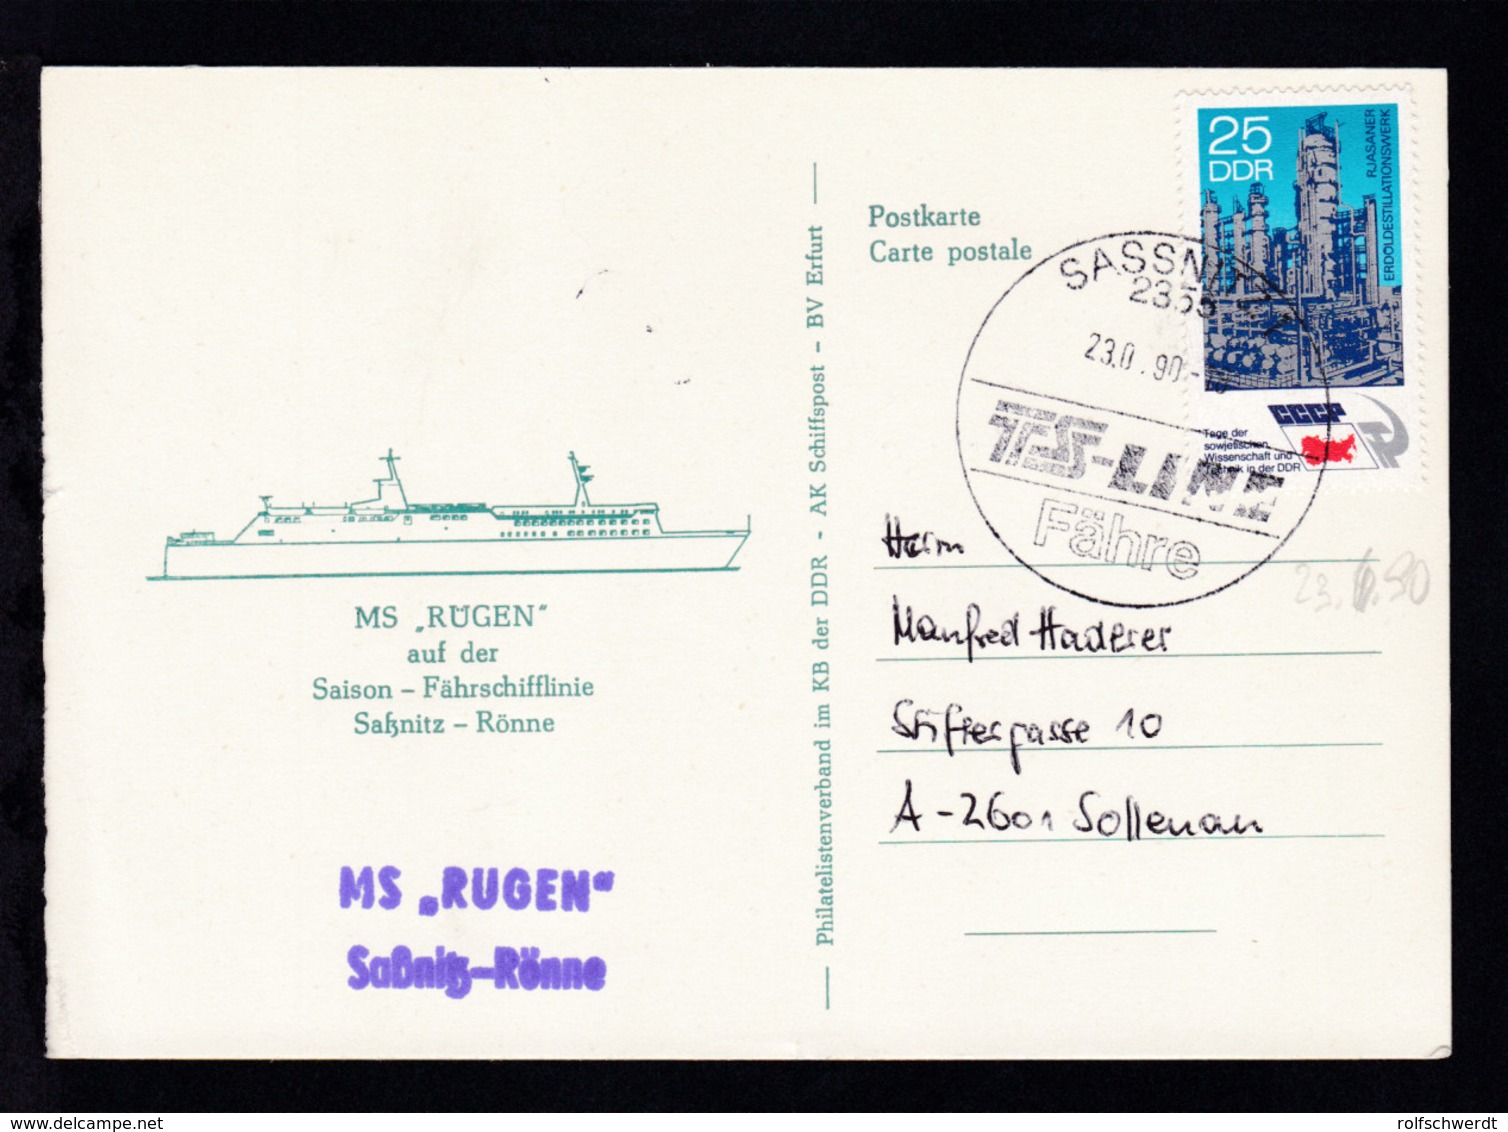 MS „RÜGEN“
auf der
Saison – Fährschifflinie
Saßnitz – Rönne
MS „RUGEN“
Saßnitz–Rönne
Philatelistenverband im KB der DDR - AK Schiffspost - BV Erfurt
Postkarte
Carte postale
25
DDR
RJASANER
ERDÖLDESTILLATIONSWERK
CCCP
Tage der
sowjetischen
Wissenschaft und
Technik in der DDR
SASSNITZ 1
2355
23.0 .90
TS-LINE
Fähre
Herrn
Manfred Haderer
Stiftergasse 10
A-2601 Sollenau
23.6.90
delcampe.net
rolfschwerdt